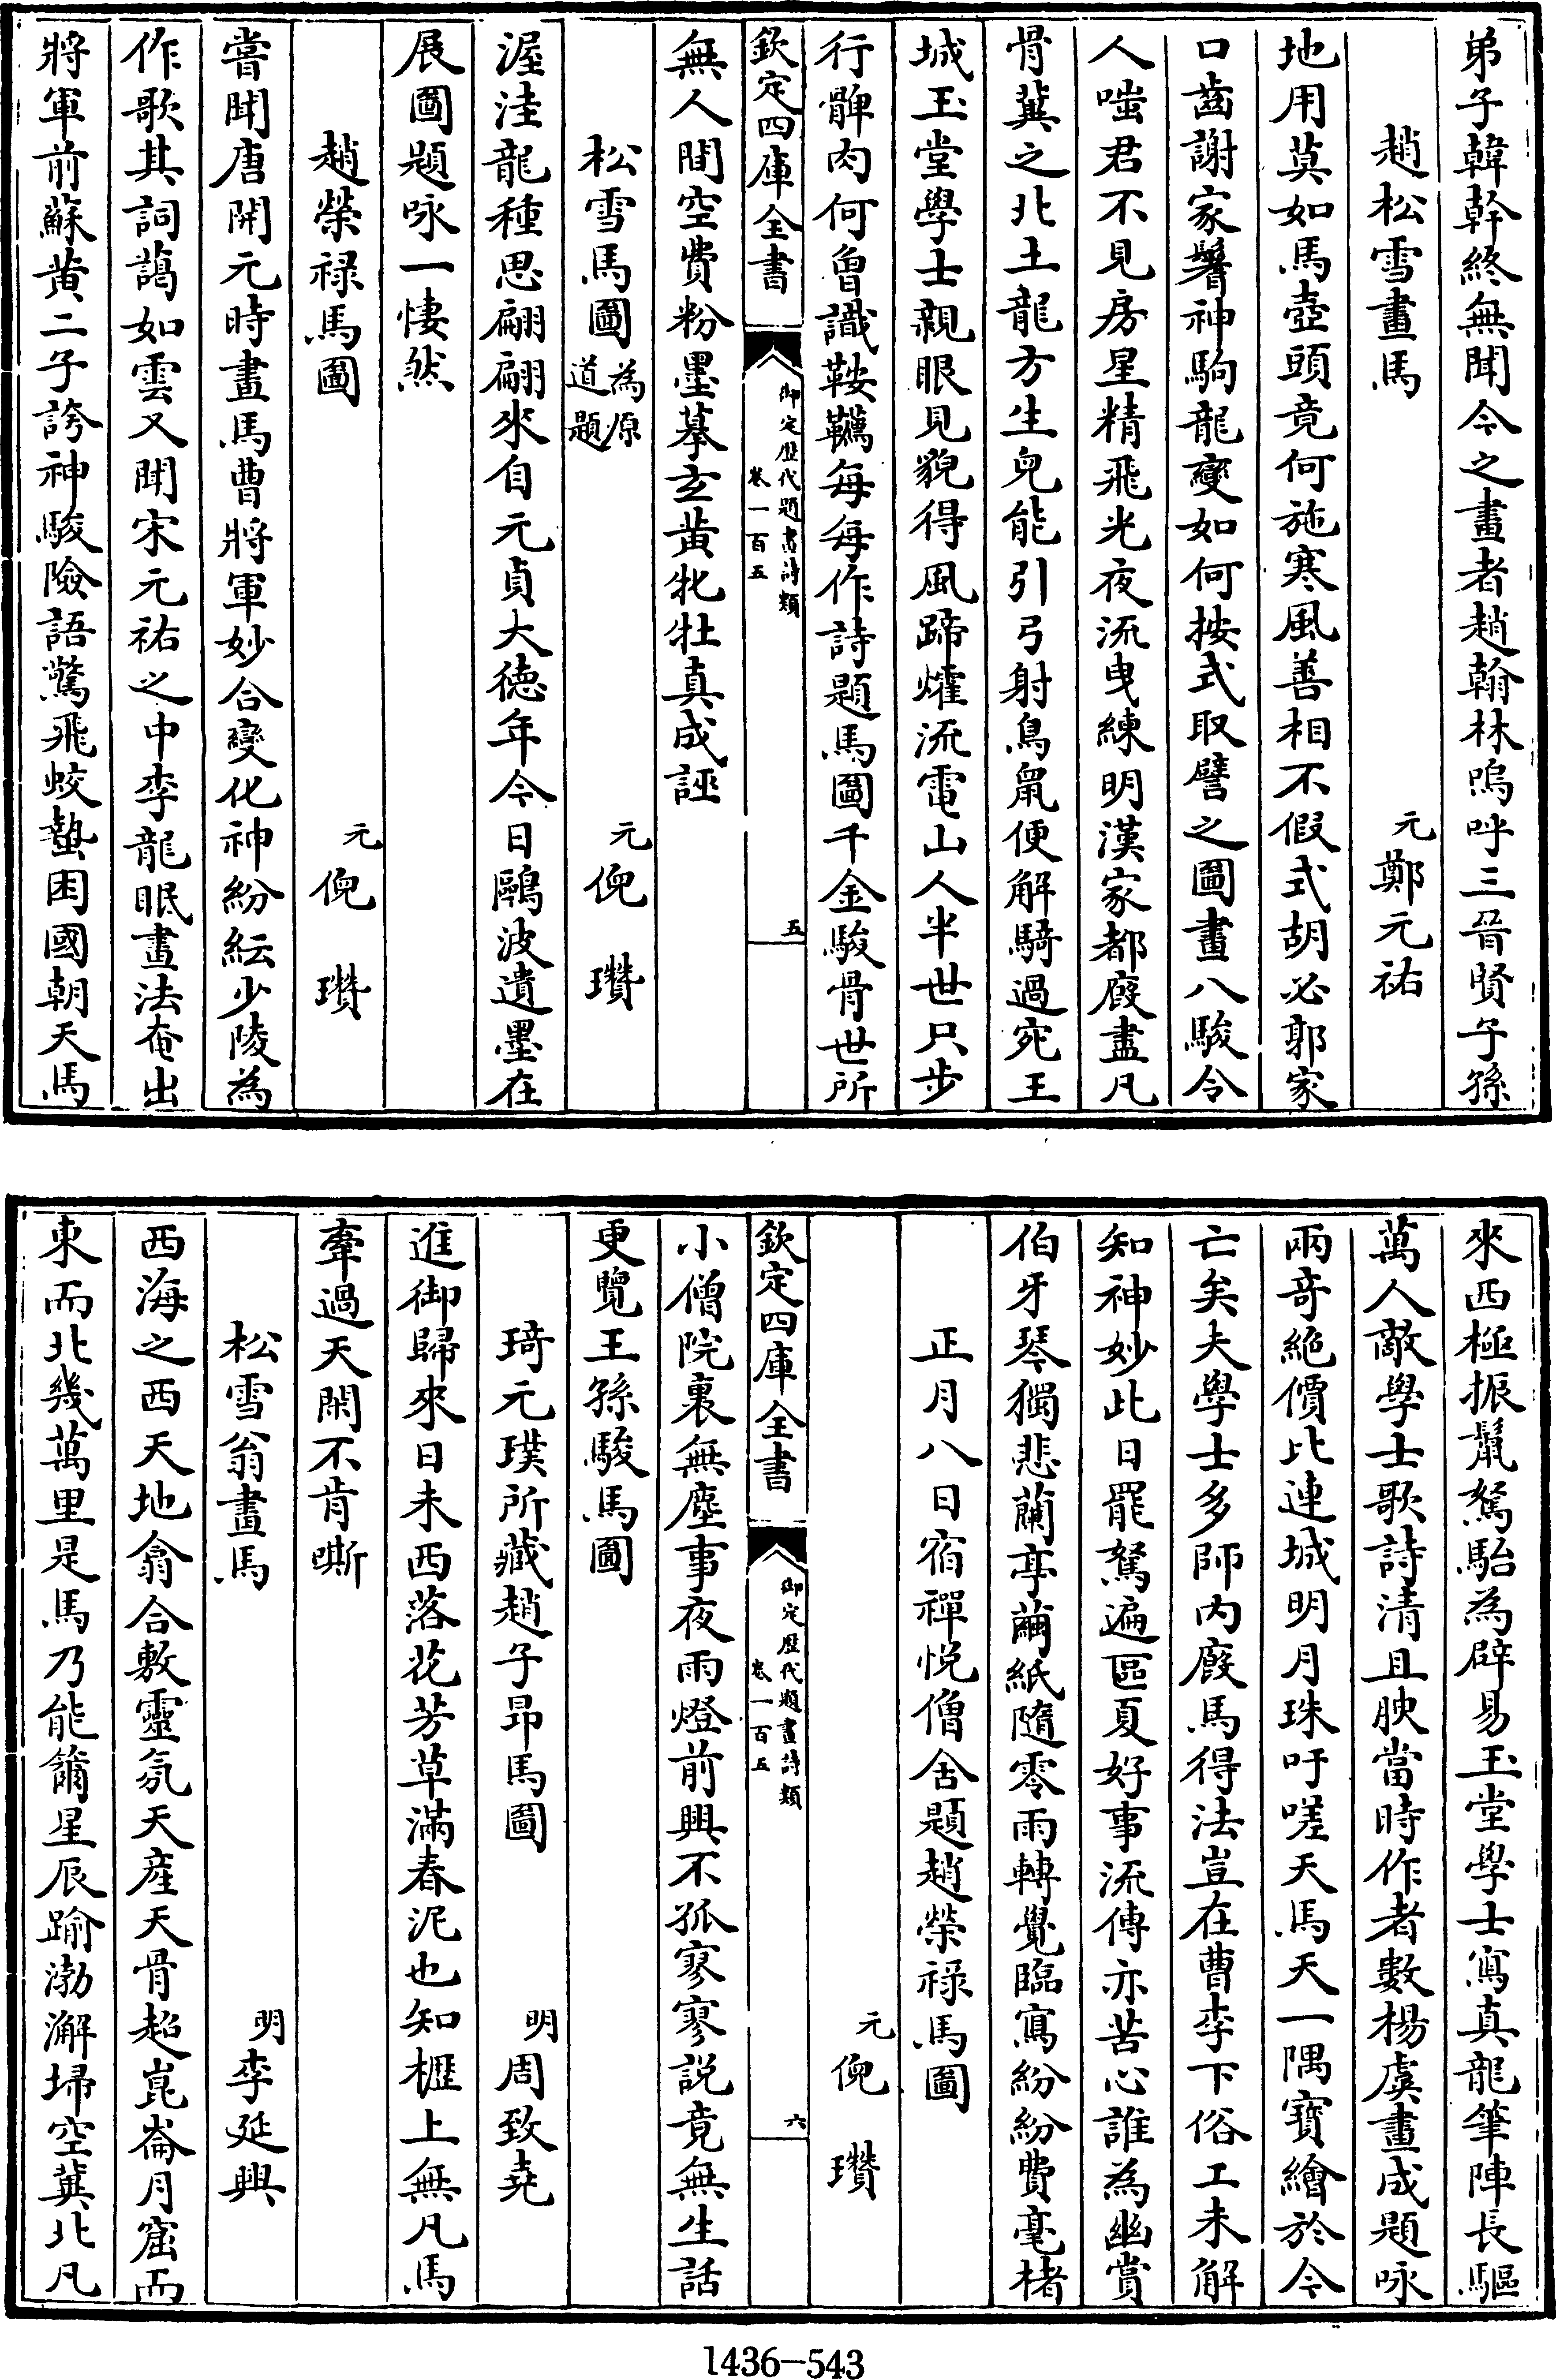 弟子韓幹終無聞今之畫者趙翰林嗚呼三晉賢子孫
趙松雪畫馬
元鄭元祐
地用莫如馬壺頭竟何施寒風善相不假式胡必郭家
口齒謝家鬐神駒龍變如何按式取譬之圖畫八駿令
人嗤君不見房星精飛光夜流曳練明漢家都廄盡凡
骨冀之北土龍方生兒能引弓射鳥鼠便解騎過宛王
城玉堂學士親眼見貌得風蹄爟流電山人半世只步
行髀肉何曾識鞍韉每每作詩題馬圖千金駿骨世所
欽定四庫全書
御定歷代題畫詩類
卷一百五
五
無人間空費粉墨摹玄黄牝牡真成誣
松雪馬圖為原道題
元倪瓚
渥洼龍種思翩翩來自元貞大德年今日鷗波遺墨在
展圖題咏一悽然
趙榮禄馬圖
元倪瓚
嘗聞唐開元時畫馬曹將軍妙合變化神紛紜少陵為
作歌其詞藹如雲又聞宋元祐之中李龍眠畫法奄出
將軍前蘇黄二子誇神駿險語驚飛蛟蟄困國朝天馬
來西極振鬛駑駘為辟易玉堂學士寫真龍筆陣長驅
萬人敵學士歌詩清且腴當時作者數楊虞畫成題咏
兩奇絶價比連城明月珠吁嗟天馬天一隅寳繪於今
亡矣夫學士多師内廄馬得法豈在曹李下俗工未解
知神妙此日罷駑遍區夏好事流傳亦苦心誰為幽賞
伯牙琴獨悲蘭亭繭紙隨零雨轉覺臨寫紛紛費毫楮
正月八日宿禪悦僧舍題趙榮禄馬圖
元倪瓚
欽定四庫全書
御定歷代題畫詩類
卷一百五
六
小僧院裏無塵事夜雨燈前興不孤寥寥説竟無生話
更覽王孫駿馬圖
琦元璞所藏趙子昂馬圖
明周致堯
進御歸來日未西落花芳草滿春泥也知櫪上無凡馬
牽過天閑不肯嘶
松雪翁畫馬
明李延興
西海之西天地翕合敷靈氛天産天骨超崑崙月窟而
東而北幾萬里是馬乃能籋星辰踰渤澥埽空冀北凡
1436-543